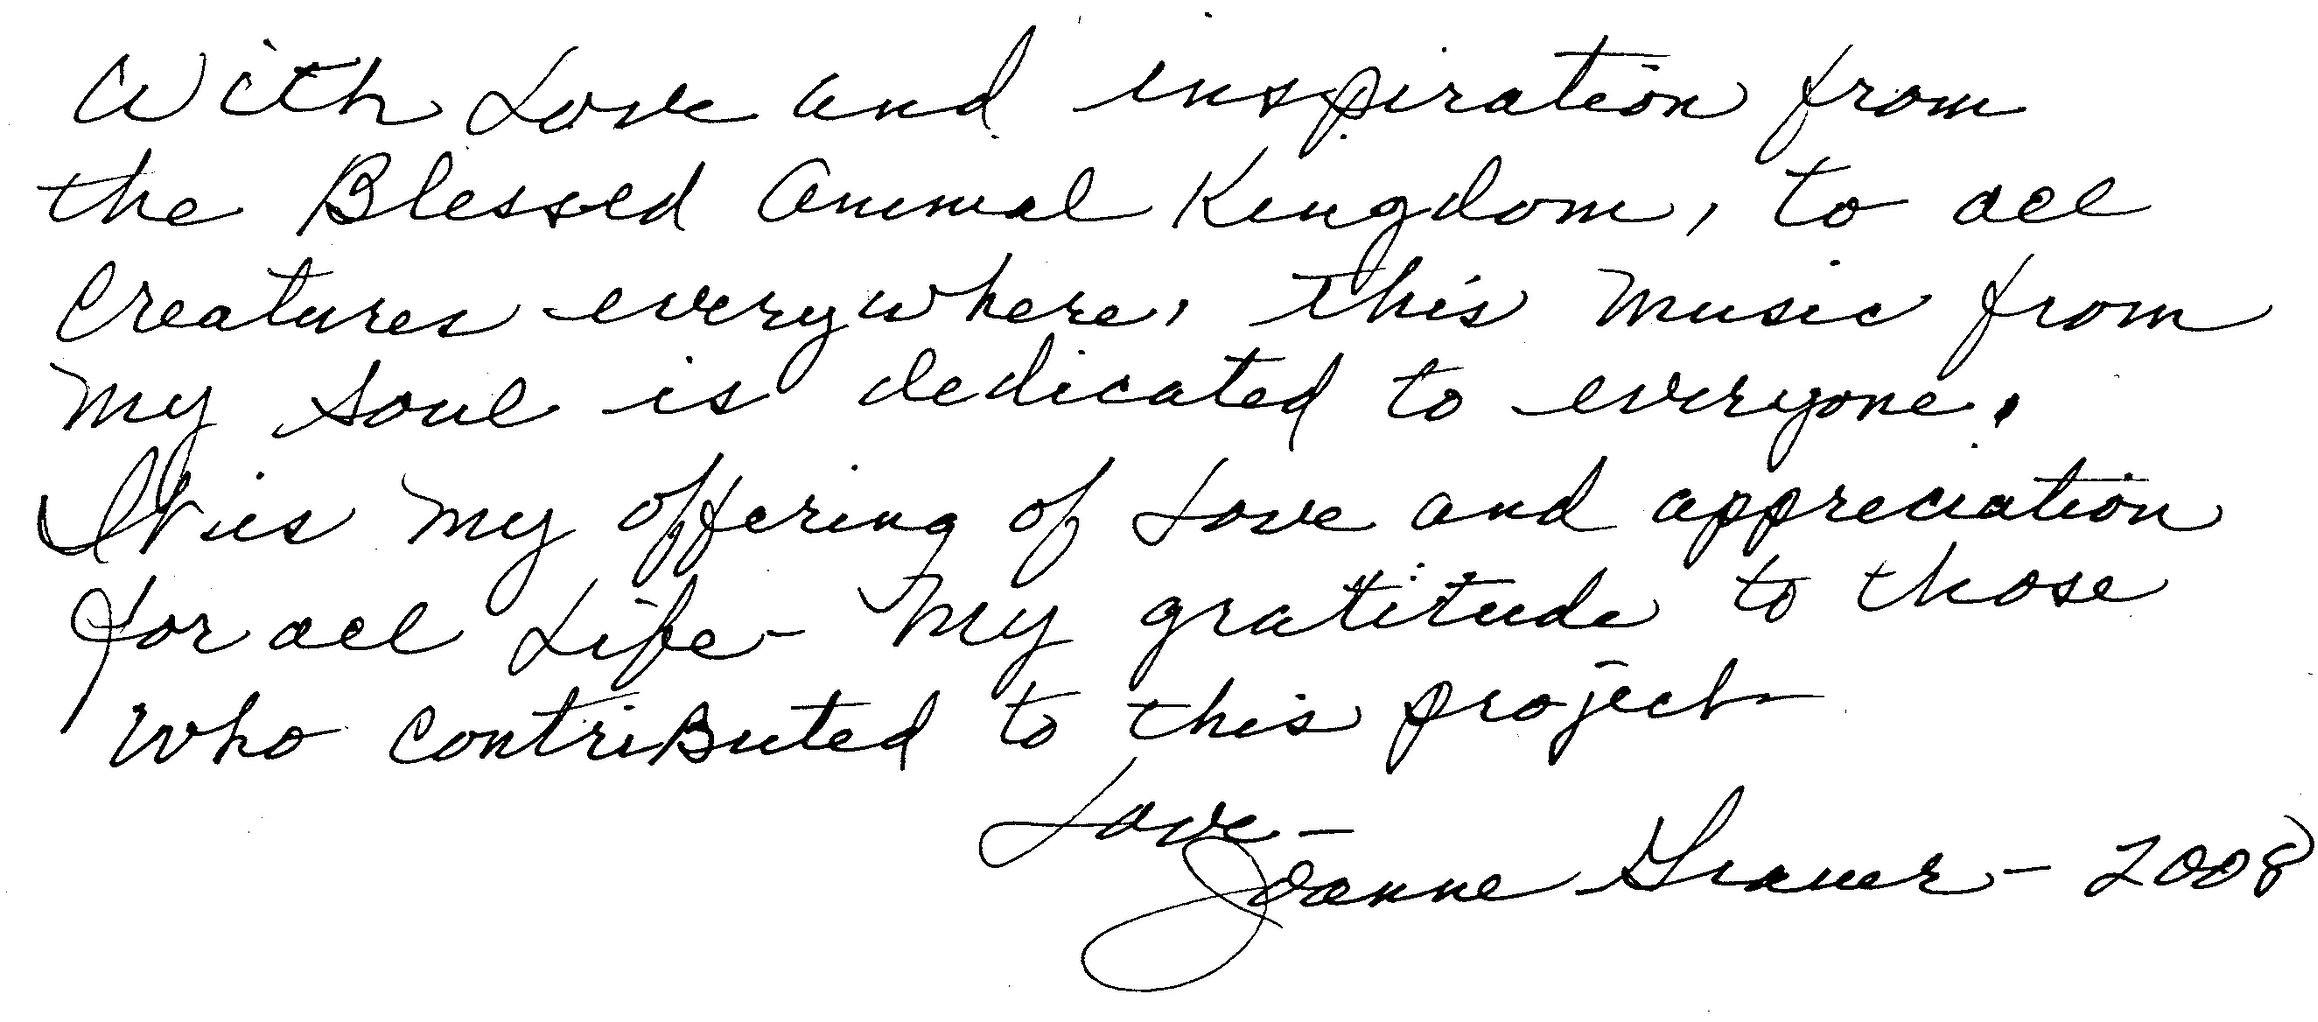 With Love and inspiration from
the Blessed Animal Kingdom, to all
Creatures everywhere, this Music from
My Soul is dedicated to everyone.
It is My offering of Love and appreciation
for all Life - My gratitude to those
who contributed to this project
Love -
Joanne - 2008